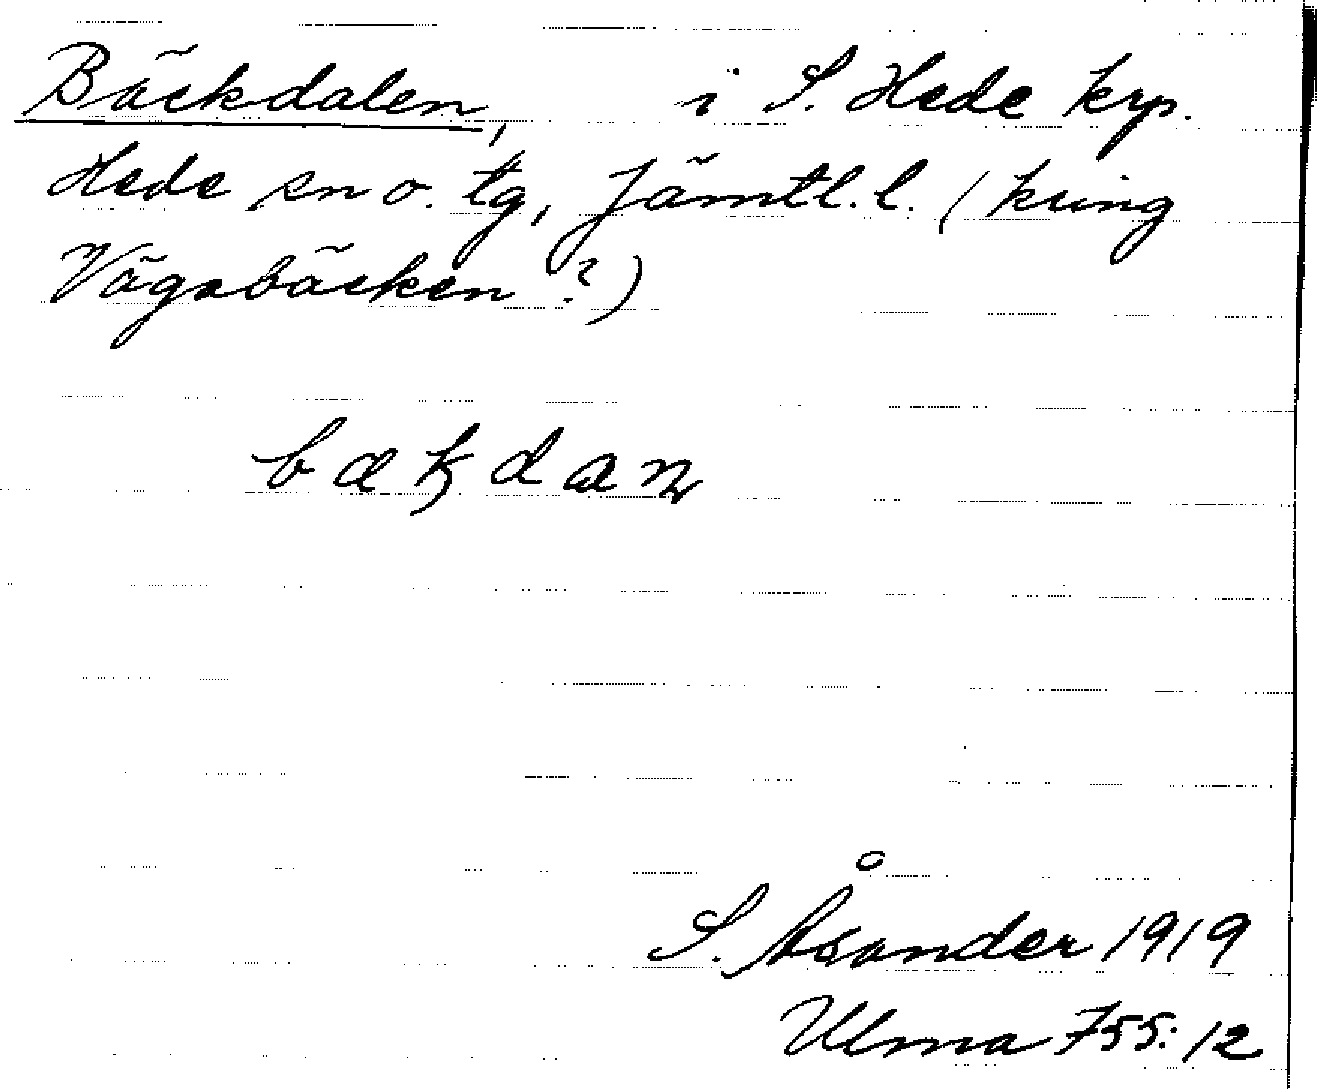 Bäckdalen, i S. Hede krp.
Hede sn o. tg, Jämtl. l. (kring
Vågsbäcken?)
bækdan
S. Åsander 1919
Ulma 755:12